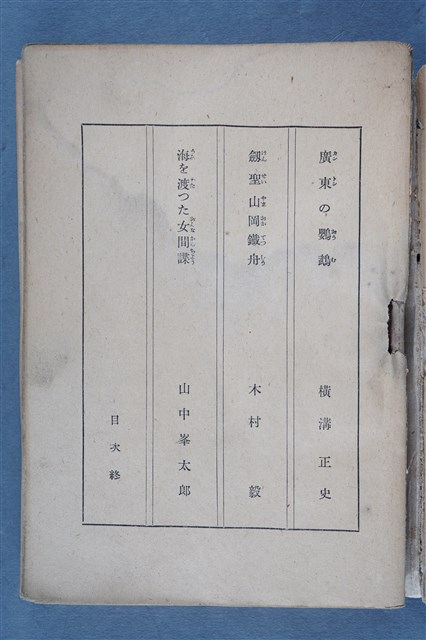 廣東の鸚鵡 横溝正史
劍聖山岡鐵舟 木村毅
海を渡つた女間諜 山中峯太郎
目次終